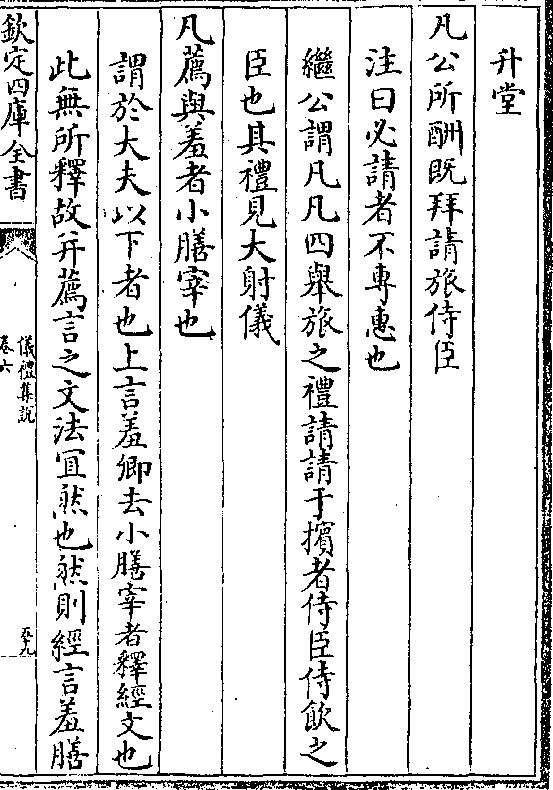 升堂
凡公所酬既拜請旅侍臣
注曰必請者不專惠也
繼公謂凡凡四舉旅之禮請請于擯者侍臣侍飲之
臣也具禮見大射儀
凡薦與羞者小膳宰也
謂於大夫以下者也上言羞卿去小膳宰者釋經文也
此無所釋故并薦言之文法宜然也然則經言羞膳
欽定四庫全書
儀禮集説
卷六
五九